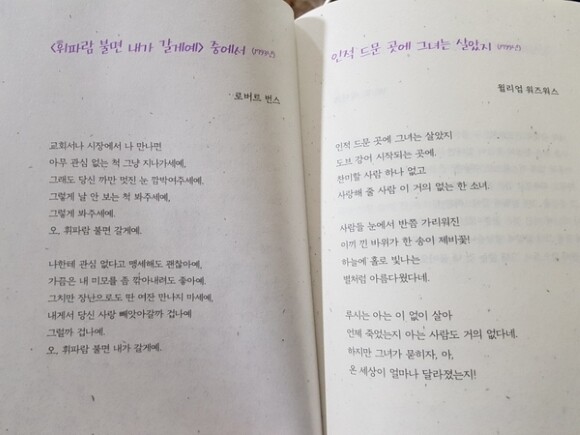 <휘파람 불면 내가 갈게에> 중에서
로버트 번스
교회서나 시장에서 나 만나면
아무 관심 없는 척 그냥 지나가세예.
그래도 당신 까만 멋진 눈 깜박여주세예.
그렇게 날 안 보는 척 봐주세예.
그렇게 봐주세예.
오, 휘파람 불면 갈게예.
나한테 관심 없다고 맹세해도 괜찮아예.
가끔은 내 미모를 좀 깎아내려도 좋아예.
그치만 장난으로도 딴 여잔 만나지 마세예.
내게서 당신 사랑 빼앗아갈까 겁나예
그럴까 겁나예.
오, 휘파람 불면 내가 갈게예.
인적 드문 곳에 그녀는 살았지
윌리엄 워즈워스
인적 드문 곳에 그녀는 살았지
도브 강이 시작되는 곳에.
찬미할 사람 하나 없고
사랑해 줄 사람 이 거의 없는 한 소녀.
사람들 눈에서 반쯤 가리워진
이끼 낀 바위가 한 송이 제비꽃!
하늘에 홀로 빛나는
별처럼 아름다웠다네.
루시는 아는 이 없이 살아
언제 죽었는지 아는 사람도 거의 없다네.
하지만 그녀가 묻히자, 아,
온 세상이 얼마나 달라졌는지!